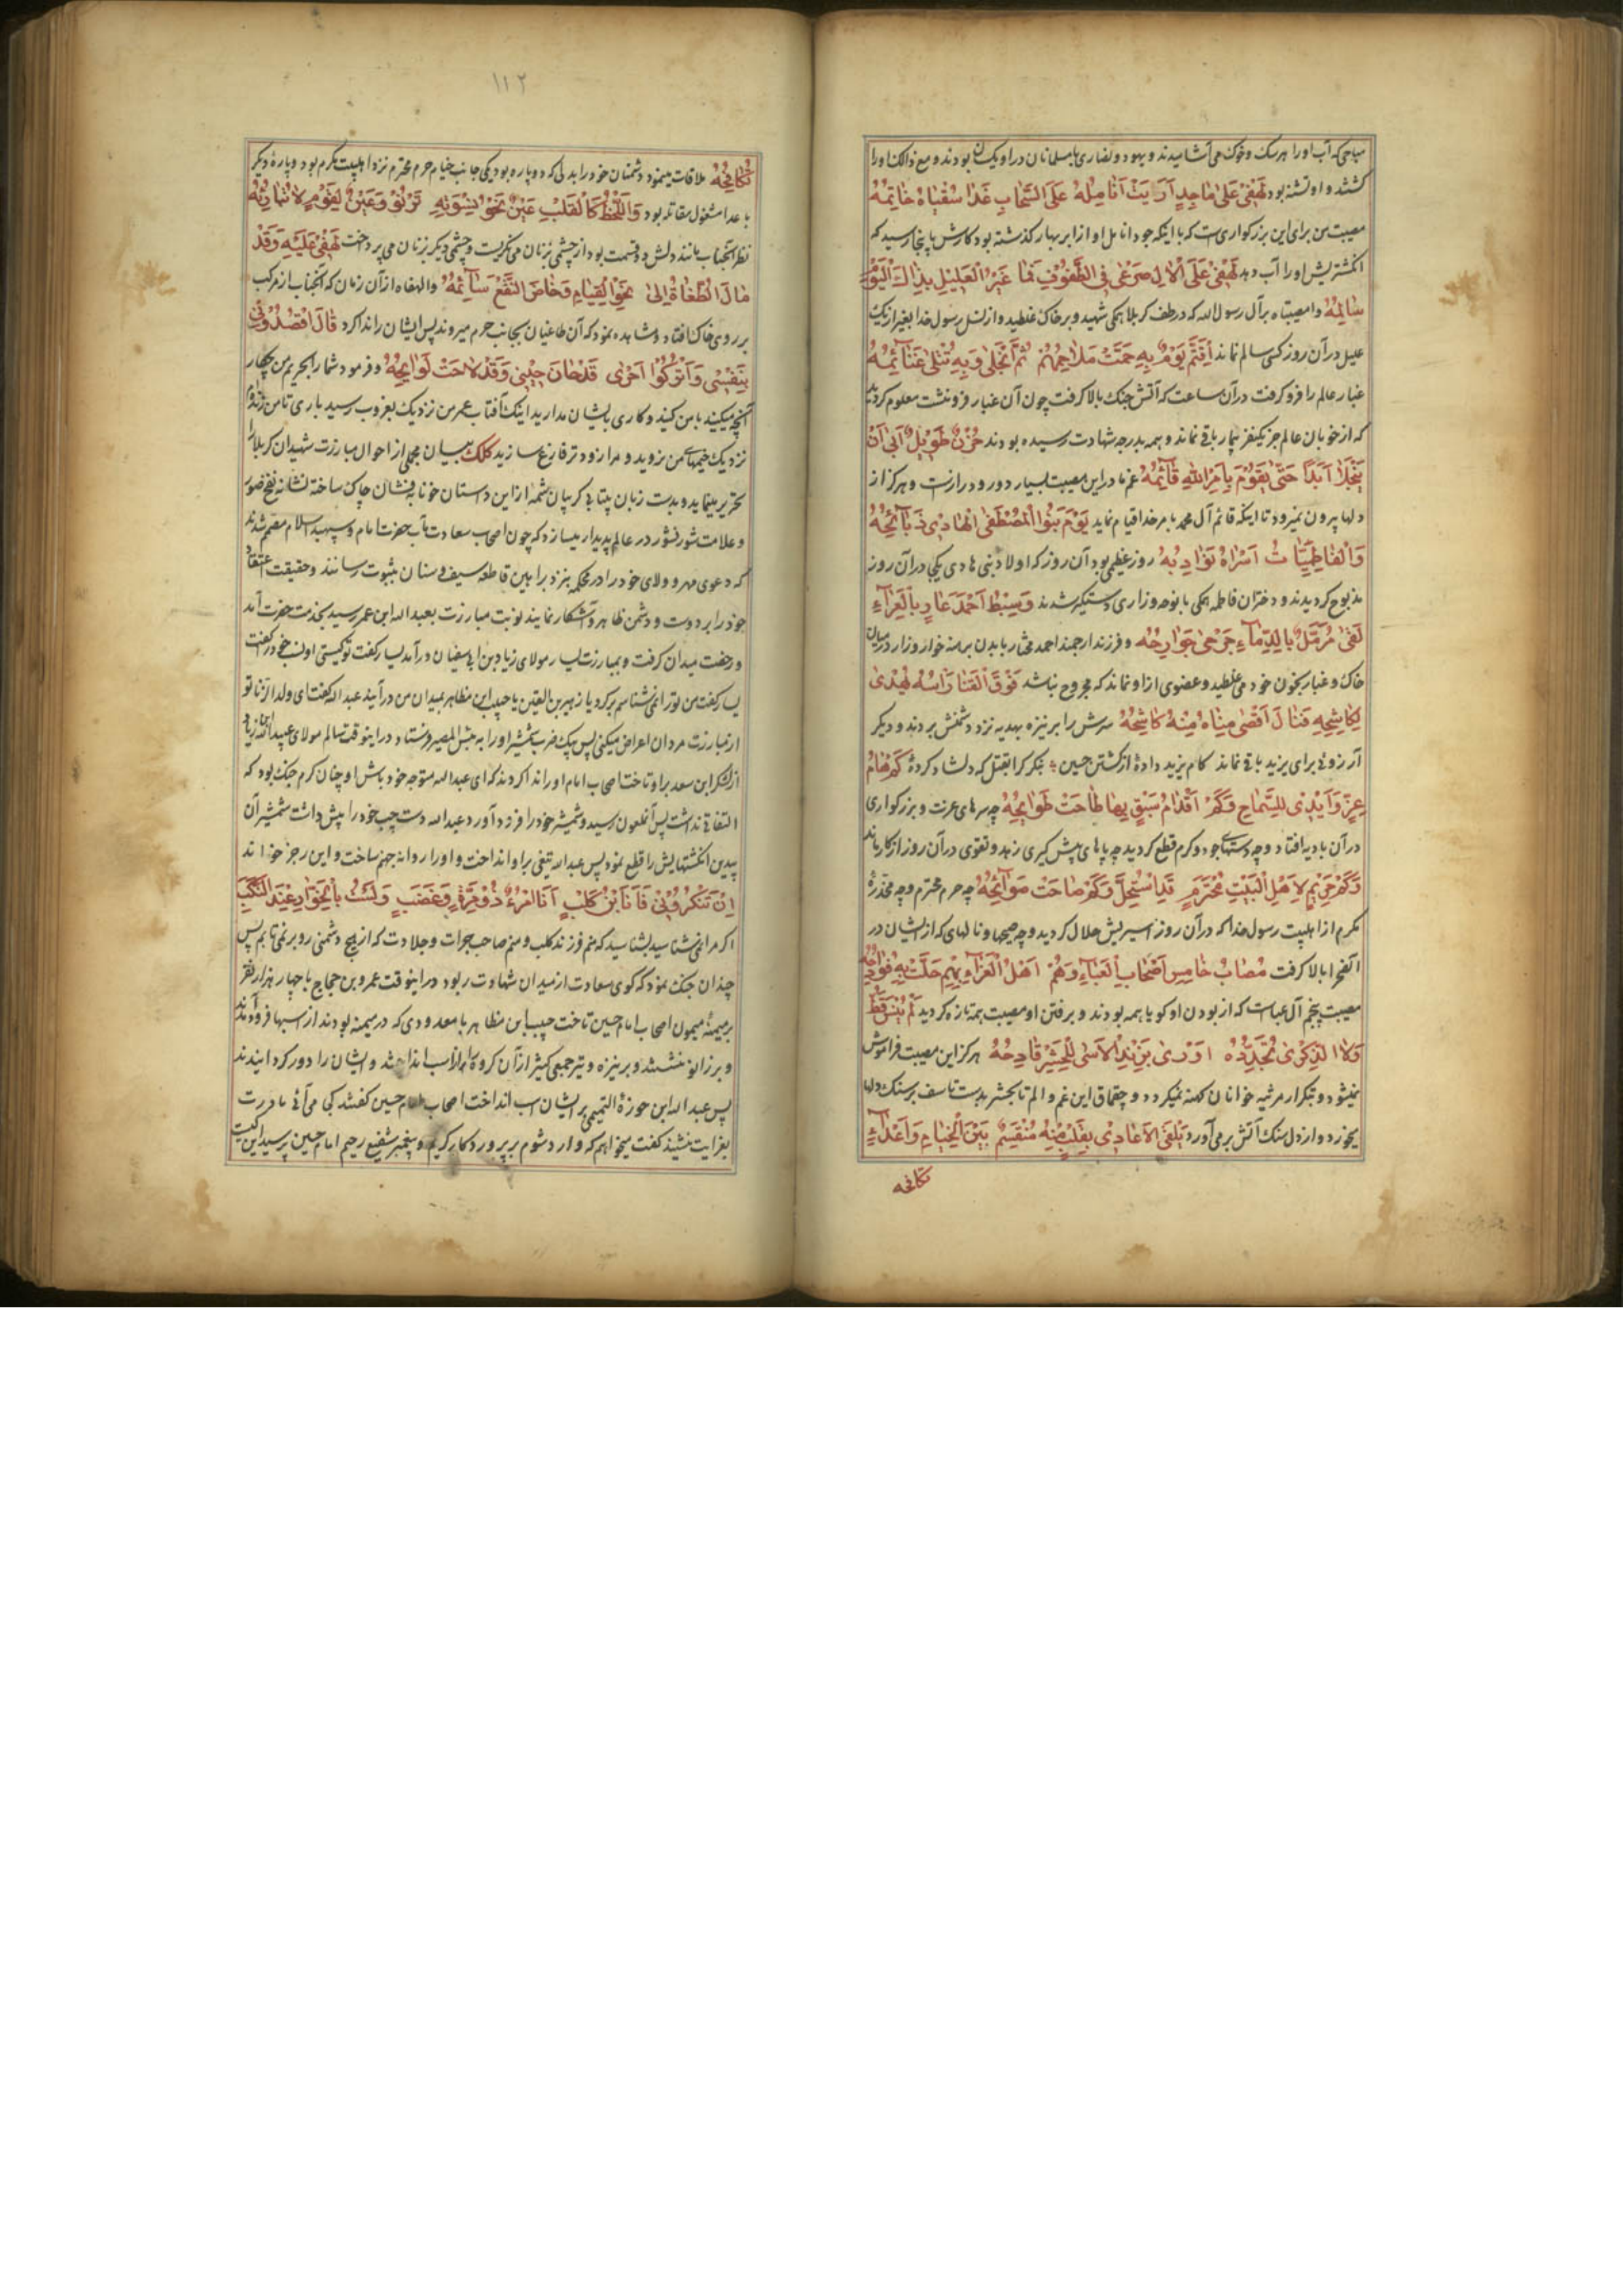 میاهی که آب او را هر سک و خوک می آشامیدند و یهود و نصاری با مسلمانان در او یکسان بودند و مع ذالک او را
کشتند و او تشنه بود لَهَفِیْ عَلیٰ مٰاجِدٍ اَرْبَتْ اَنٰامِلُهُ عَلَی السَّحٰابِ غَدٰا سُقْیٰاهُ خٰاتِمُهُ
مصیبت من برای این بزرکواری ست که با اینکه جود انامل او از ابر بهار کذشته بود کارش باینجا رسید که
انکشتریش او را آب دهد لَهَفِیْ عَلَی الْاٰلِ صَرْعیٰ فِی الطُّفُوْفِ فَمٰا غَیْرُ الْعَلِیْلِ بِذٰاکَ الْیَوْمِ
سٰالِمُهُ وا مصیبتاه بر آل رسول الله که در طف کربلا همکی شهید و بر خاک غلطید و از نسل رسول خدا بغیر از یک
علیل در آن روز کسی سالم نماند
غبار عالم را فرو کرفت در آن ساعت که آتش جنک بالا کرفت چون آن غبار فرو نشست معلوم کردید
که از خوبان عالم جز یکنفر بیمار باقی نماند و همه بدرجه شهادت رسیده بودند حُزْنٌ طَوِیْلٌ اَبیٰ اَنْ
یَنْجَلِیْ اَبَدًا حَتّیٰ یَقُوْمَ بِاَمْرِ اللّٰهِ قٰائِمُهُ غم ما در این مصیبت بسیار دور و دراز است و هرکز از
دلها بیرون نمیرود تا اینکه قائم آل محمد بامر خدا قیام نماید یَوْمَ بَنُوا الْمُصْطَفیٰ الْهٰادِیْ ذَبٰائِحُهُ
وَالْفٰاطِمِیّٰاتُ اُسَرٰاهُ نَوٰادِبُهُ روز عظیمی بود آن روز که اولاد نبی هادی یکی در آن روز
مذبوح کردیدند و دختران فاطمه همکی با نوحه و زاری دستکیر شدند وَسِبْطُ اَحْمَدَ عٰارٍ بِالْعَرٰاءِ
لَقیٰ مُرَمَّلٌ بِالدِّمٰاءِ جَرْحیٰ جَوٰارِحُه و فرزند ارجمند احمد مختار با بدن برهنه خوار و زار در میان
خاک و غبار بخون خود می غلطید و عضوی از او نماند که مجروح نباشد فَوْقَ الْقَنٰا رَاْسُهُ یُهْدیٰ
لِکٰاشِحِهِ فَنٰالَ اَقْصیٰ مُنٰاهُ مِنْهُ کٰاشِحُهُ سرش را بر نیزه بهدیه نزد دشمنش بردند و دیکر
آرزوئی برای یزید باقی نماند کام یزید دادهٔ از کشتن حسین بنکر کرا بقتل که دلشاد کردهٔ کَمْ هٰامُ
عِزٍّ وَاَیْدِیْ لِلسَّمٰاحِ وَکَمْ اَقْدٰامُ سَبْقٍ بِهٰا طٰاحَتْ طَوٰایِحُهُ چه سرهای عزت و بزرکواری
در آن بادیه افتاد و چه دستهای جود و کرم قطع کردید چه پاهای پیش کیری زهد و تقوی در آن روز از کار ماند
وَکَمْ حَرِیْمٍ لِاَهْلِ الْبَیْتِ مُحْتَرَمٍ قَدِ اسْتُحِلَّ وَکَمْ صٰاحَتْ صَوٰائِحُهُ چه حرم محترم و چه مخدرهٔ
مکرم از اهلبیت رسول خدا که در آن روز اسیریش حلال کردید و چه صیحها و نالهای که از ایشان در
آنصحرا بالا کرفت مُصٰابُ خٰامِسِ اَصْحٰابِ الْعَبٰاءِ وَهُمْ اَهْلُ الْعَزٰاءِ بِهِمْ حَلَّتْ بِهِ فَوٰادِحُهُ
مصیبت پنجم آل عباست که از بودن او کویا همه بودند و برفتن او مصیبت همه تازه کردید لَمْ یُنْسَ قَطُّ
وَلَا الذِّکْریٰ تُجَدِّدُهُ اَوْریٰ بِزَنْدِ الْاَسیٰ لِلْحَشْرِ قٰادِحُهُ هرکز این مصیبت فراموش
نمیشود و بتکرار مرثیه خوانان کهنه نمیکردد و چقماق این غم و الم تا بحشر بدست تاسف بر سنک دلها
میخورد و از دل سنک آتش بر می آورد یَلْقَی الْاَعٰادِیْ بِقَلْبٍ مِنْهُ مُنْقَسِمٌ بَیْنَ الْخِیٰامِ وَاَعْدٰاءٍ
تکافحه
۱۱۲
تُکٰافِحُهُ ملاقات مینمود دشمنان خود را بدلی که دو پاره بود یکی جانب خیام حرم محترم نزد اهلبیت مکرم بود و پارهٔ دیکر
با عدا مشغول مقاتله بود وَاللَّحْظُ کَالْقَلْبِ عَیْنٌ نَحْوَ نِسْوَتِهِ تَرْنُوْ وَعَیْنٌ لِقَوْمٍ لٰا تُبٰارِحُهُ
نظر آنجناب مانند دلش دو قسمت بود از چشمی بزنان می نکریست و چشمی دیکر بزنان می پرداخت لَهَفِیْ عَلَیْهِ وَقَدْ
مٰالَ الطُّغٰاةُ اِلیٰ نَحْوِ الْخِیٰامِ وَخٰاضَ النَّقْعَ سٰائِحُهُ والهفاه از آن زمان که آنجناب از مرکب
بر روی خاک افتاد و مشاهده نمود که آن طاغیان بجانب حرم میروند پس ایشان را ندا کرد قٰالَ اقْصُدُوْنِیْ
بِنَفْسِیْ وَاتْرُکُوْا حَرَمیٰ قَدْ حٰانَ حَیْنِیْ وَقَدْ لٰاحَتْ لَوٰایِحُهُ و فرمود شما را بحریم من چکار
آنچه میکنید با من کنید و کاری بایشان مدارید اینک آفتاب عمر من نزدیک بغروب رسید باری تا من زنده ام
نزدیک خیمهای من نروید و مرا زودتر فارغ سازید کلک بیان مجملی از احوال مبارزت شهیدان کربلا را
تحریر مینماید و بدست زبان بیتابی کریبان شمهٔ از این دستان خونابه فشان چاک ساخته نشانه نفخ صور
و علامت شور نشور در عالم پدیدار میسازد که چون اصحاب سعادت مآب حضرت امام و سپهبد اسلام مصمم شدند
که دعوی مهر و ولای خود را در محکمه نبرد ببراهین قاطعه سیف و سنان بثبوت رسانند و حقیقت اعتقاد
خود را بر دوست و دشمن ظاهر و آشکار نمایند نوبت مبارزت بعبدالله ابن عمر رسید بخدمت حضرت آمد
و رخصت میدان کرفت و بمبارزت یسار مولای زیاد بن ابی سفیان در آمد یسار کفت تو کیستی او نسب خود را کفت
یسار کفت من تو را نمی شناسم برکرد یا زهیر بن القین یا حبیب ابن مظاهر بمیدان من در آیند عبدالله کفت ای ولد الزنا تو
از مبارزت مردان اعراض میکنی پس بیک ضرب شمشیر او را به بئس المصیر فرستاد در اینوقت سالم مولای عبیدالله زیاد
از لشکر ابن سعد بر او تاخت اصحاب امام او را ندا کردند که ای عبدالله متوجه خود باش او چنان کرم جنک بود که
التفاتی نداشت پس آنملعون رسید و شمشیر خود را فرود آورد عبدالله دست چپ خود را پیش داشت شمشیر آن
بیدین انکشتهایش را قطع نمود پس عبدالله تیغی بر او انداخت و او را روانه جهنم ساخت و این رجز خواند
اِنْ تَنْکُرُوْنِیْ فَاَنَا ابْنُ کَلْبٍ اَنَا امْرُءٌ ذُوْ مِرَّةٍ وَغَضَبٍ وَلَسْتُ بِالْخَوّٰارِ عِنْدَ النَّکْبِ
اکر مرا نمی شناسید بشناسید که منم فرزند کلب و منم صاحب جرات و جلادت که از هیچ دشمنی رو بر نمی تابم پس
چندان جنک نمود که کوی سعادت از میدان شهادت ربود در اینوقت عمرو بن حجاج با چهار هزار نفر
بر میمنهٔ میمون اصحاب امام حسین تاخت حبیب ابن مظاهر با معدودی که در میمنه بودند از اسبها فرود آمدند
و بر زانو نشستند و بر نیزه و تیر جمعی کثیر از آن کروه را از اسب انداختند و ایشان را دور کردانیدند
پس عبدالله ابن حوزة التمیمی بر ایشان اسب انداخت اصحاب امام حسین کفتند کجا می آئی مادرت
بعزایت نشیند کفت میخواهم که وارد شوم بر پروردکار کریم و پیغمبر شفیع رحیم امام حسین پرسید این کیست